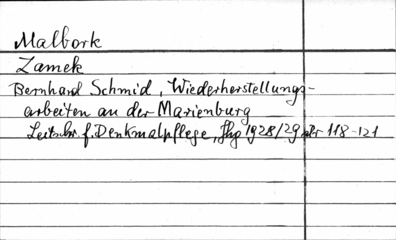 Malbork
Zamek
Bernhard Schmid, Wiederherstellungs-
arbeiten an der Marienburg
Zeitschr. f. Denkmalpflege, Jhg 1928/29 118-121